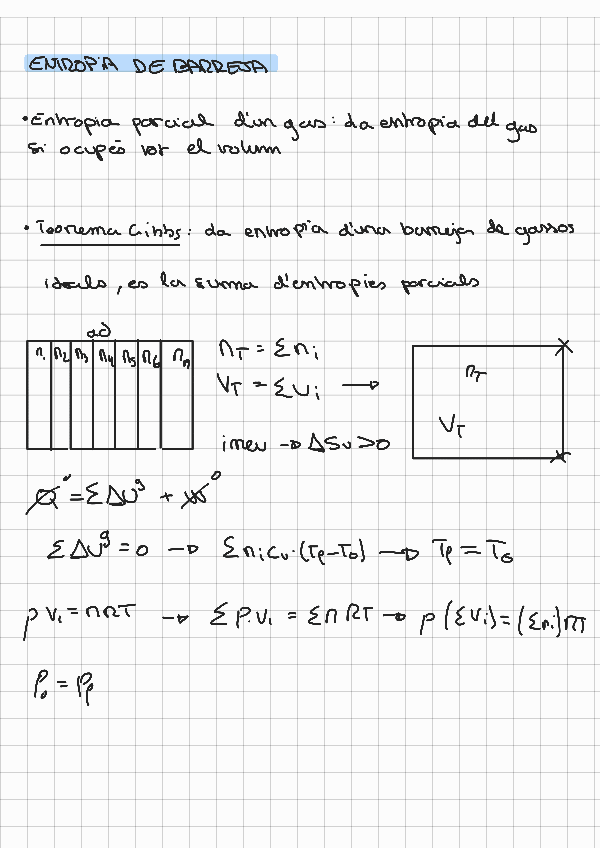 ENTROPIA DE BARREJA
• Entropia parcial d'un gas: La entropia del gas
si ocupés tot el volum
• Teorema Gibbs: La entropia d'una barreja de gasos
ideals, es la suma d'entropies parcials
ad
n₁ n₂ n₃ n₄ n₅ n₆ nₙ
n_T = Σn_i
V_T = Σv_i →
irrev → ΔS_u > 0
n_T
V_T
Q⁰ = ΣΔU^g + W⁰
ΣΔU^g = 0 → Σn_i c_v·(T_f - T_0) → T_f = T_0
p v_i = nRT → Σ p·v_i = Σn RT → p(Σv_i) = (Σn_i)RT
P_0 = P_f